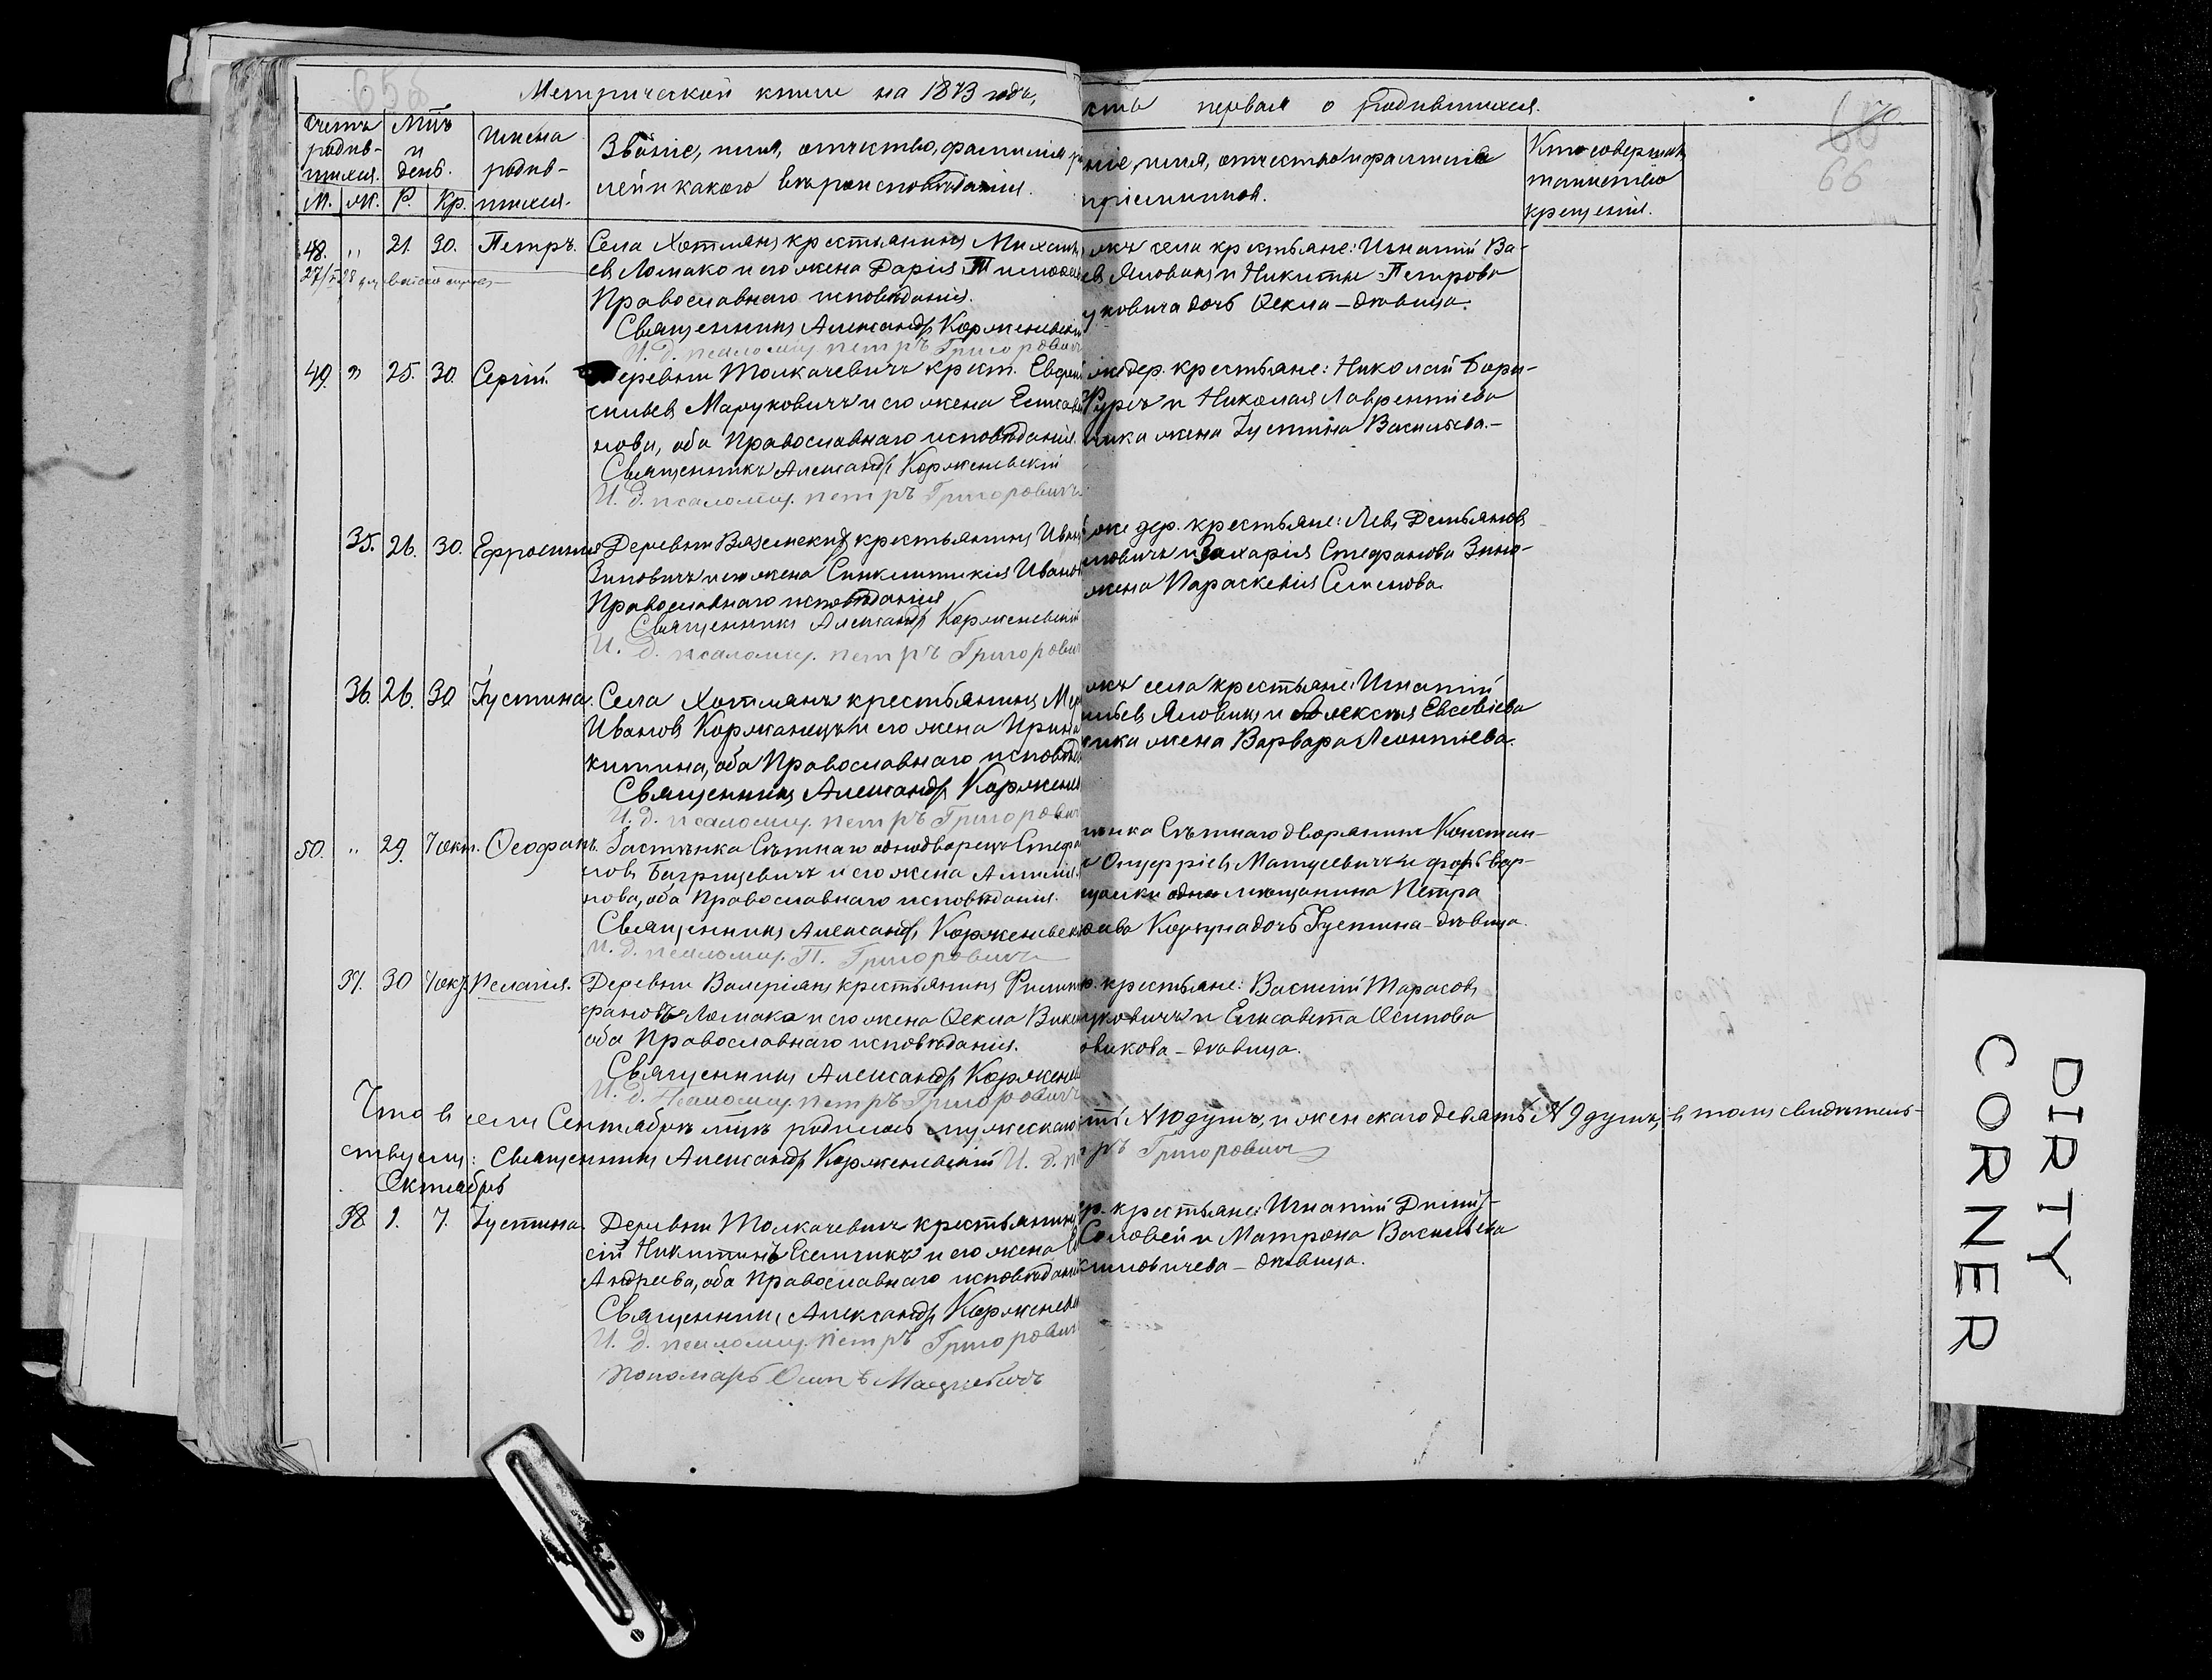 656
Метрической книги на 1873 годъ,
сть первая о родившихся.
Счетъ родив-шихся.
М. Ж.
Мцъ и день.
Р. Кр.
Имена родив-шихся.
Званіе, имя, отчество, фамилія
лей и какого вѣроисповѣданія.
ніе, имя, отчество и фамилія
пріемниковъ.
Кто совершалъ
таинство
крещенія.
70
66
48. " 21. 30. Петръ. Села Хотлянъ крестьянинъ
евъ Ломако и его жена Дарія
Православнаго исповѣданія.
Священникъ Александръ Корженевскій
И. д. псаломщ. Петръ Григоровичъ
жъ села крестьяне: Игнатій Ва-
евъ Яловикъ и Никиты Петрова
уковича дочь Ѳекла - дѣвица.
49. " 25. 30. Сергій. Деревни Толкачевичъ крест.
сильевъ Маруковичъ и его жена
нова, оба Православнаго исповѣданія.
Священникъ Александръ Корженевскій
И. д. псаломщ. Петръ Григоровичъ
же дер. крестьяне: Николай Бори-
и Николая Лаврентіева
чика жена Іустина Васильева.-
35. 26. 30. Ефросинія Деревни крестьянинъ
Зиновичъ и его жена Синклитикія
Православнаго исповѣданія
Священникъ Александръ Корженевскій
И. д. псаломщ. Петръ Григоровичъ
же дер. крестьяне: Левъ Демьяновъ
новичъ и Захарія Стефанова Зино-
жена Параскевія Семенова.
36. 26. 30 Іустина. Села Хотлянъ крестьянинъ
Ивановъ Коржанецъ и его жена Ирина
китина, оба Православнаго исповѣда
Священникъ Александръ Коржене
И. д. псаломщ. Петръ Григорович
жъ села крестьяне: Игнатій
ильевъ Яловикъ и Алексѣя Евсевіева
чика жена Варвара Леонтіева.
50. " 29. 1 окт. Ѳеофанъ. Застѣнка Сѣтнаго однодворецъ
новъ и его жена
нова, оба Православнаго исповѣданія.
Священникъ Александръ Корженевск
И. д. псаломщ. П. Григоровичъ
тѣнка Сѣтнаго дворянинъ Констан-
Онуфріевъ Матусевичъ и
мѣщанина Петра
дочь Іустина - дѣвица.
37. 30 1 окт. Пелагія. Деревни Валеріянъ крестьянинъ
фановъ Ломако и его жена Ѳекла
оба Православнаго исповѣданія.
Священникъ Александръ Коржене
И. д. Псаломщ. Петръ Григоровичъ
р. крестьяне: Василій Тарасовъ
уковичъ и Елисавета Осипова
овикова - дѣвица.
Что въ семъ Сентябрѣ мцѣ родилось мужескаго
ть №10 душъ, и женскаго девять №9 душъ, въ томъ свидѣтель-
ствуемъ: Священникъ Александръ Корженевскій И. д.
ръ Григоровичъ
Октябрь
38 1. 7. Іустина. Деревни Толкачевичъ крестьянинъ
сій Никитинъ и его жена
Андреева, оба Православнаго исповѣданія
Священникъ Александръ Корженевск
И. д. псаломщ. Петръ Григорович
Пономарь Осипъ Мацкевичъ
ер. крестьяне: Игнатій
Соловей и Матрона Васильева
симовичева - дѣвица.
DIRTY
CORNER